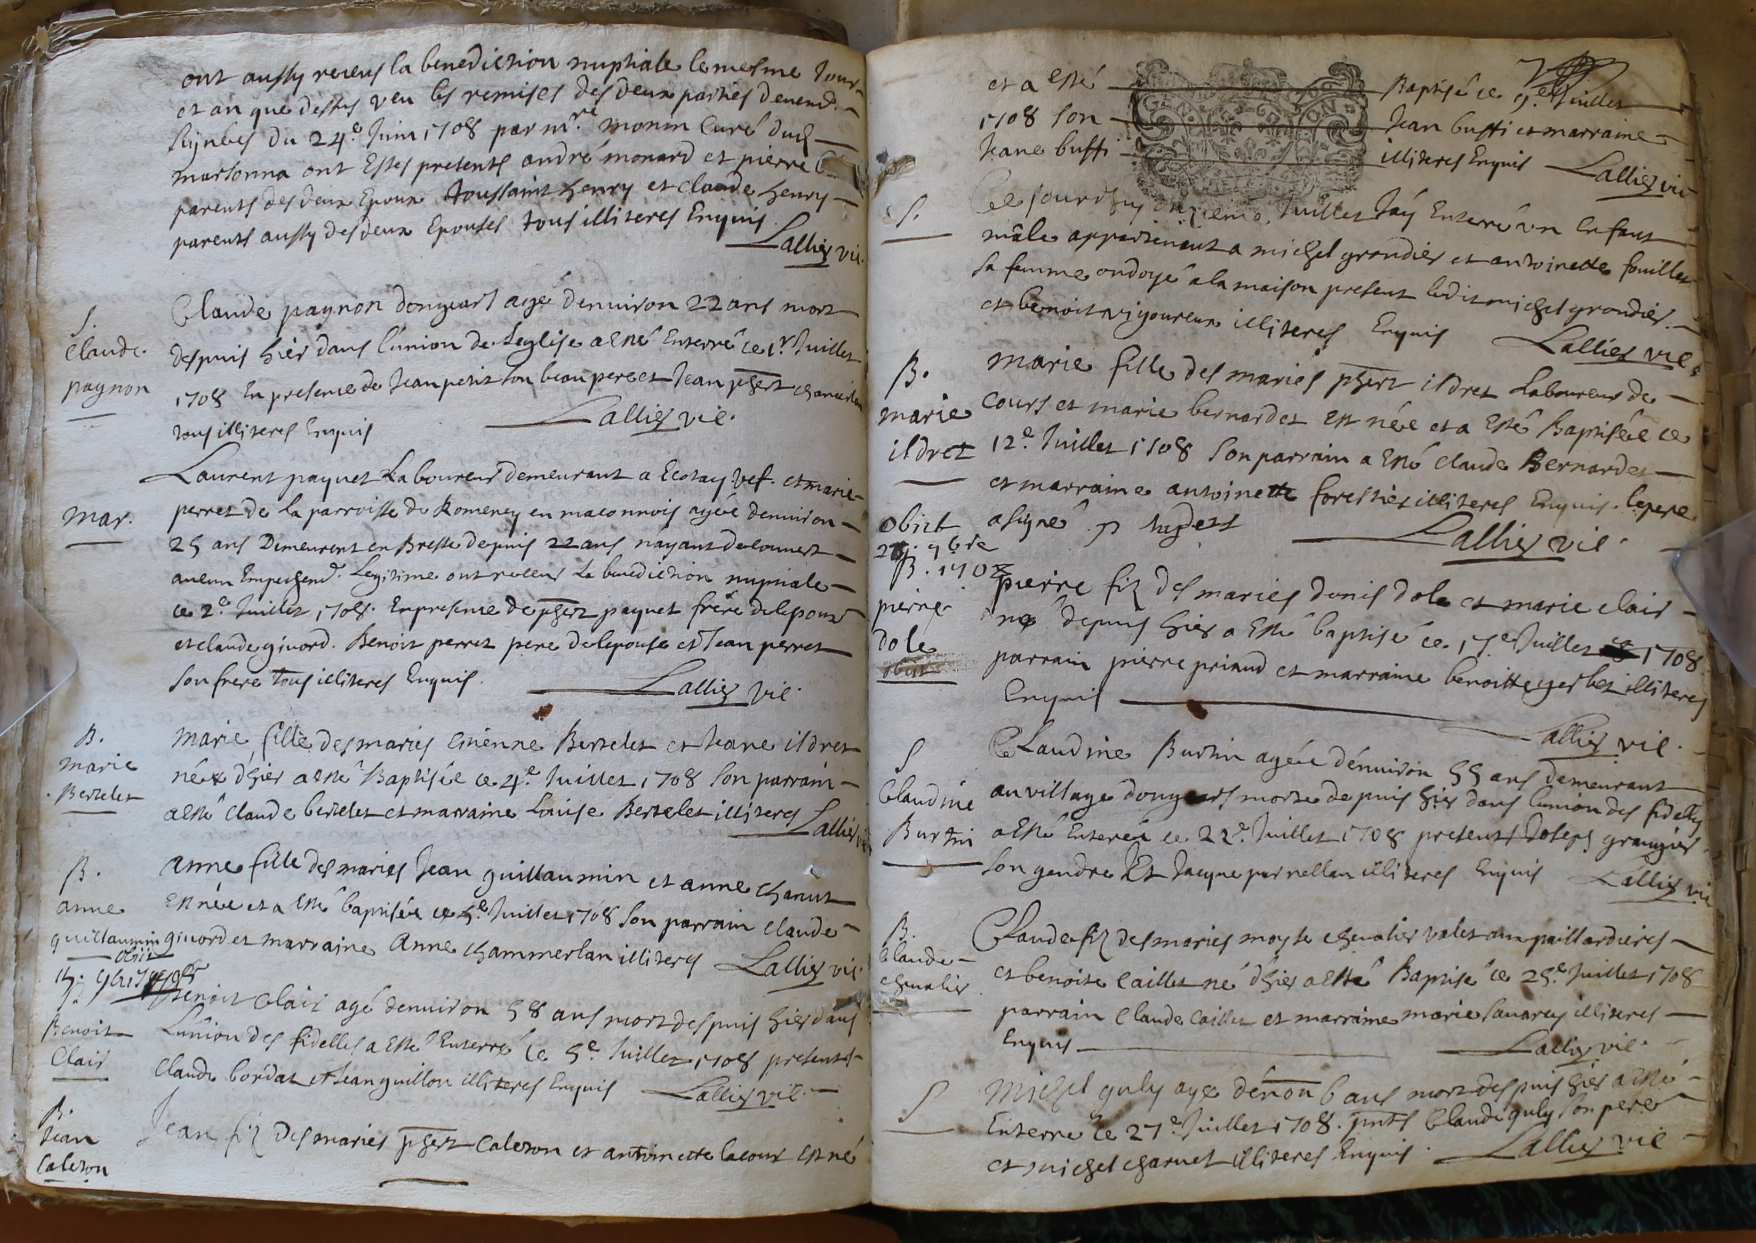 ont aussy receus la benediction nuptiale le mesme Jour
et an que dessus veu les remises des deux parties
signées du 24e Juin 1708 par mre monin curé dud
marsonna ont Estes presents andré monard et pierre
parents des deux Epoux toussaint henry et claude henry
parents aussy des deux Epouses tous illiteres Enquis
Lallier vic.
S.
Claude
pagnon
Claude pagnon agé denuiron 22 ans mort
despuis hier dans l'union de Leglise a esté Enterré ce 1r Juillet
1708 En presence de Jean petit son beau pere et Jean phert
tous illiteres Enquis
Lallier vic.
mar.
Laurent paquet Laboureur demeurant a Ecotay vef. et marie
perret de la parroisse de Romeney en maconnois agée denuiron
25 ans Demeurent en Bresse depuis 22 ans nayant decouuert
aucun Empeschemt. Legitime ont receus La benediction nuptiale
ce 2e Juillet 1708. En presence de phert paquet frere delepoux
et claude giuord. Benoit perret pere delepouse et Jean perret
son frere tous illiteres Enquis.
Lallier vic.
B.
marie
Bertelet
Marie fille des mariés etienne Bertelet et Jeane ildret
née dhier a esté Baptisée ce 4e Juillet 1708 son parrain
a esté claude bertelet et marraine Louise Bertelet illiteres
Lallier vic
B.
anne
guillaumin
obiit
15. 9bris 1708
anne fille des mariés Jean guillaumin et anne charut
est née et a esté baptisée ce 5e Juillet 1708 son parrain claude
giuord et marraine Anne chammerlan illiteres
Lallier vic
Benoit
Clair
Benoit Clair agé denuiron 58 ans mort despuis hier dans
L'union des fidelles a esté Enterré ce 5e Juillet 1708 presents
Claude bordat et Jean guillon illiteres Enquis
Lallier vic.
B.
Jean
Caleron
Jean fiz des mariés phert Caleron et antoinette lacour est né
et a esté Baptisé ce 9e Juillet
1708 son Jean buffi et marraine
Jeane buffi illiteres Enquis
Lallier vic
S.
Ce Jourdhuy onzieme Juillet Jay Enterré un Enfant
mâle appartenant a michel grandier et antoinette fouillet
sa femme ondoyé a la maison present ledit michel grandier
et benoit vigoureux illiteres Enquis
Lallier vic
B.
marie
ildret
Marie fille des mariés phert ildret Laboureur de
cours et marie bernardet est née et a esté Baptisée ce
12e Juillet 1708 son parrain a esté claude Bernardet
et marraine antoinette forestier illiteres Enquis. le pere
a signé
Lallier vic.
obiit
9bris
1708
B.
pierre
dole
pierre fiz des mariés denis dole et marie clair
né depuis hier a esté baptisé ce 17e Juillet 1708
parrain pierre priaud et marraine benoitte gerbet illiteres
Enquis
Lallier vic.
S
Claudine
Burtin
Claudine Burtin agée denuiron 55 ans demeurant
au village morte depuis hier dans lunion des fidelles
a esté Enterée ce 22e Juillet 1708 presents Joseph grangier
son gendre Et Jaque pernellan illiteres Enquis
Lallier vic
B.
Claude
cheualier
Claude fiz des mariés moyse cheualier valet aux paillardieres
et benoite caillet né dhier a esté Baptisé ce 25e Juillet 1708
parrain Claude Caillet et marraine marie sauarey illiteres
Enquis
Lallier vic.
S
Michel guly agé denuon 6 ans mort despuis hier a esté
Enterré ce 27e Juillet 1708. pnts Claude guly son pere
et michel charuet illiteres Enquis.
Lallier vic